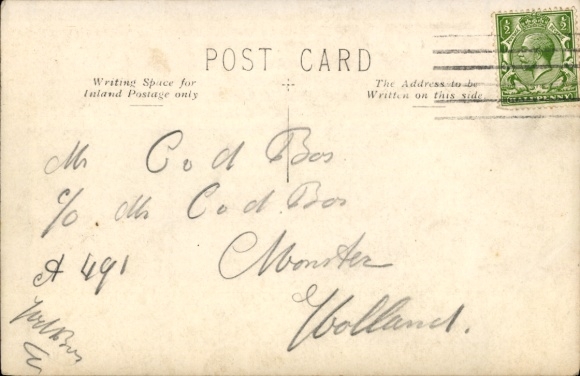 POST CARD
Writing Space for
Inland Postage only
The Address to be
Written on this side
½
½
HALFPENNY
Mr C. v d Bos
c/o Mr C. v d. Bos
A 491
Monster
Holland.